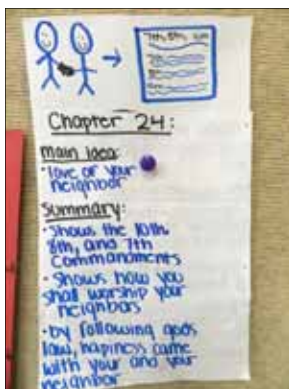 7th, 8th,
Chapter 24:
main idea:
·love of your
neighbor
Summary:
·Shows the 10th,
8th, and 7th
Commandments
·Shows how you
shall worship your
neighbors
·by following gods
law, hapiness came
with your and your
neighbor